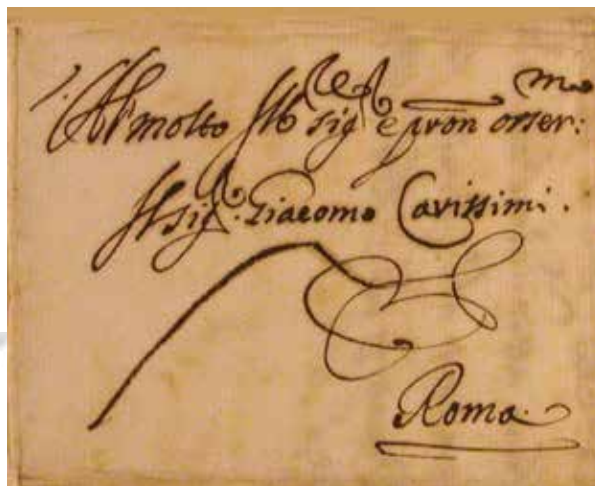 All molto Ill sig e pron osser: mo
Il sig. Giacomo Carissimi.
Roma